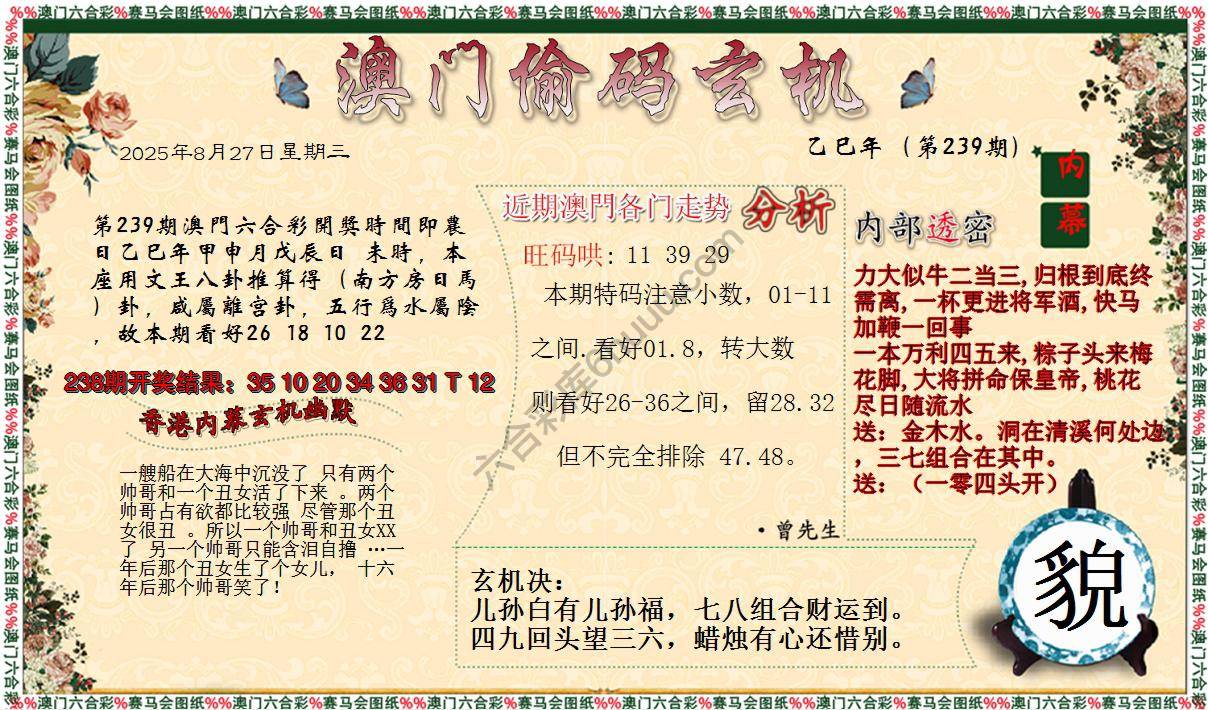 %%澳门六合彩%赛马会图纸%%澳门六合彩%赛马会图纸%%澳门六合彩%赛马会图纸%%澳门六合彩%赛马会图纸%%澳门六合彩%赛马会图纸%%澳门六合彩%赛马会图纸%%
澳门偷码玄机
2025年8月27日星期三
乙巳年（第239期）
内幕
第239期澳門六合彩開獎時間即農
日乙巳年甲申月戊辰日 未時，本
座用文王八卦推算得（南方房日馬
）卦，咸屬離宫卦，五行爲水屬陰
，故本期看好26 18 10 22
238期开奖结果：35 10 20 34 36 31 T 12
香港内幕玄机幽默
一艘船在大海中沉没了 只有两个
帅哥和一个丑女活了下来 。两个
帅哥占有欲都比较强 尽管那个丑
女很丑 。所以一个帅哥和丑女XX
了 另一个帅哥只能含泪自撸 …一
年后那个丑女生了个女儿， 十六
年后那个帅哥笑了！
近期澳門各门走势 分析
旺码哄：11 39 29
本期特码注意小数，01-11
之间.看好01.8，转大数
则看好26-36之间，留28.32
但不完全排除 47.48。
·曾先生
内部透密
力大似牛二当三,归根到底终
需离,一杯更进将军酒,快马
加鞭一回事
一本万利四五来,粽子头来梅
花脚,大将拼命保皇帝,桃花
尽日随流水
送：金木水。洞在清溪何处边
，三七组合在其中。
送：（一零四头开）
玄机决：
儿孙白有儿孙福，七八组合财运到。
四九回头望三六，蜡烛有心还惜别。
貌
%%澳门六合彩%赛马会图纸%%澳门六合彩%赛马会图纸%%澳门六合彩%赛马会图纸%%澳门六合彩%赛马会图纸%%澳门六合彩%赛马会图纸%%澳门六合彩%赛马会图纸%%